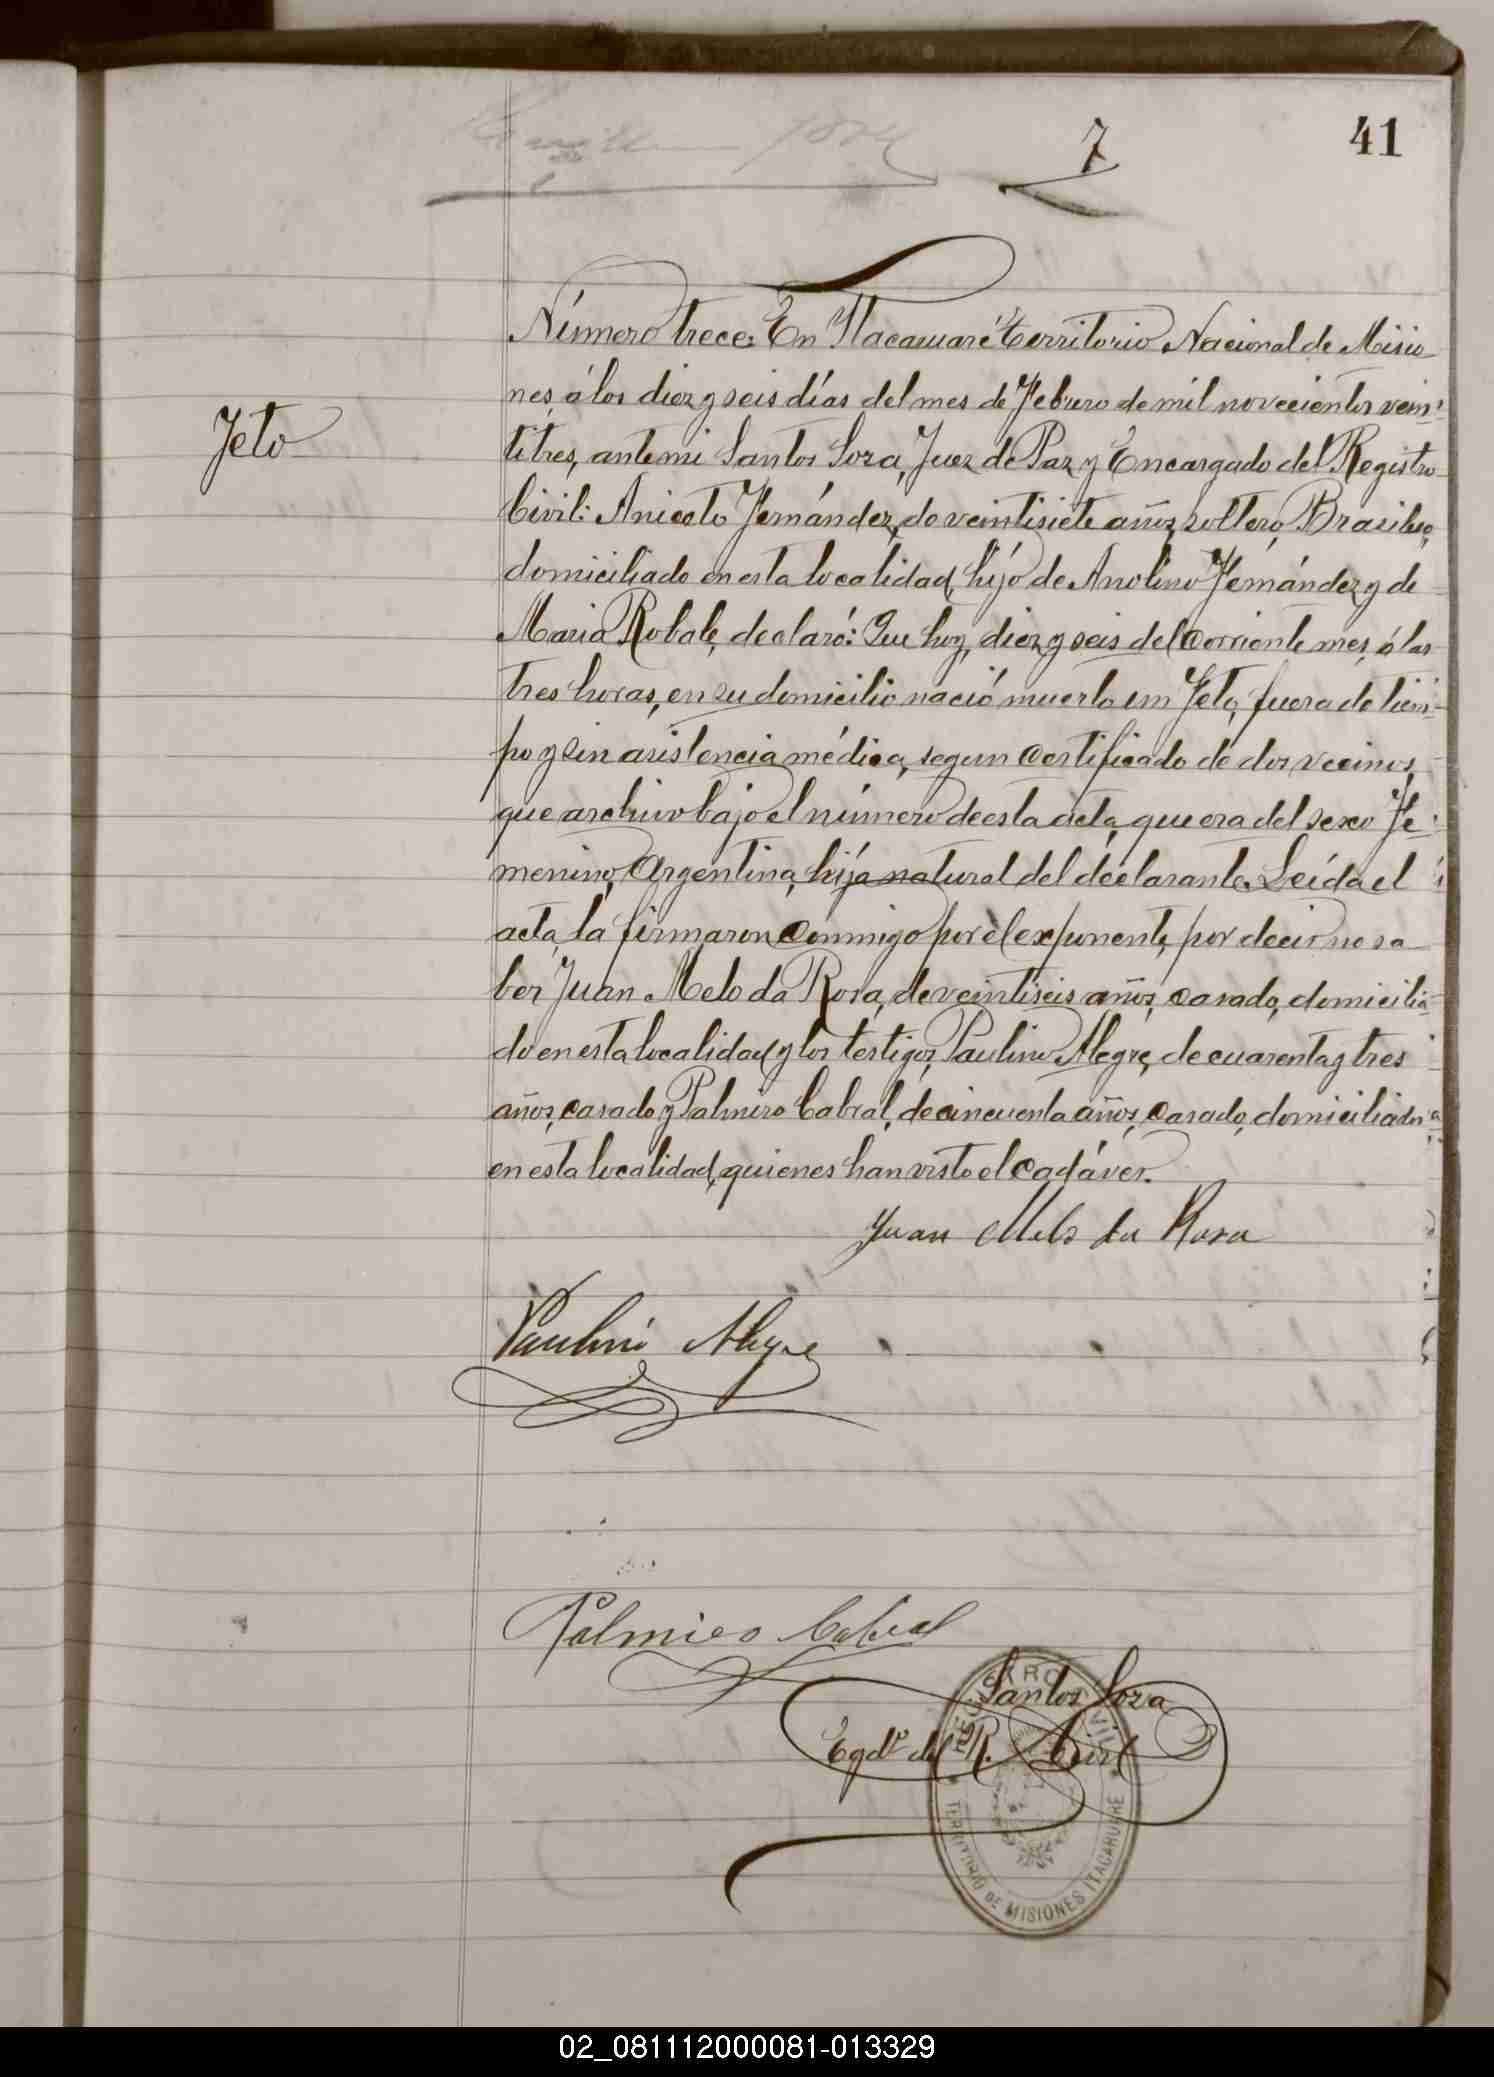 7
41
Número trece: En Itacaruaré Territorio Nacional de Misio
nes, á los diez y seis días del mes de Febrero de mil novecientos vein-
Feto
titres, ante mi Santos Soza, Juez de Paz y Encargado del Registro
Civil: Aniceto Fernández, de veintisiete años, soltero, Brasilero,
domiciliado en esta localidad, hijo de Anolino Fernández y de
Maria Robale, declaró: Que hoy, diez y seis del corriente mes, á las
tres horas, en su domicilio nació muerto un Feto, fuera de tiem-
po y sin asistencia médica, segun certificado de dos vecinos,
que archivo bajo el número de esta acta, que era del sexo Fe-
menino, Argentina, hija natural del declarante. Leída el
acta, la firmaron conmigo por el exponente, por decir no sa
ber, Juan Melo da Rosa, de veintiseis años, casado, domicilia-
do en esta localidad y los testigos, Paulino Alegre, de cuarenta y tres
años, casado y Palmiro Cabral, de cincuenta años, casado, domiciliados
en esta localidad, quienes han visto el cadáver.
Juan Melo da Rosa
Paulino Alegre
Palmiro Cabral
Santos Soza
Egdo. del R. Civil
REGISTRO CIVIL
TERRITORIO DE MISIONES ITACARUARE
02_081112000081-013329